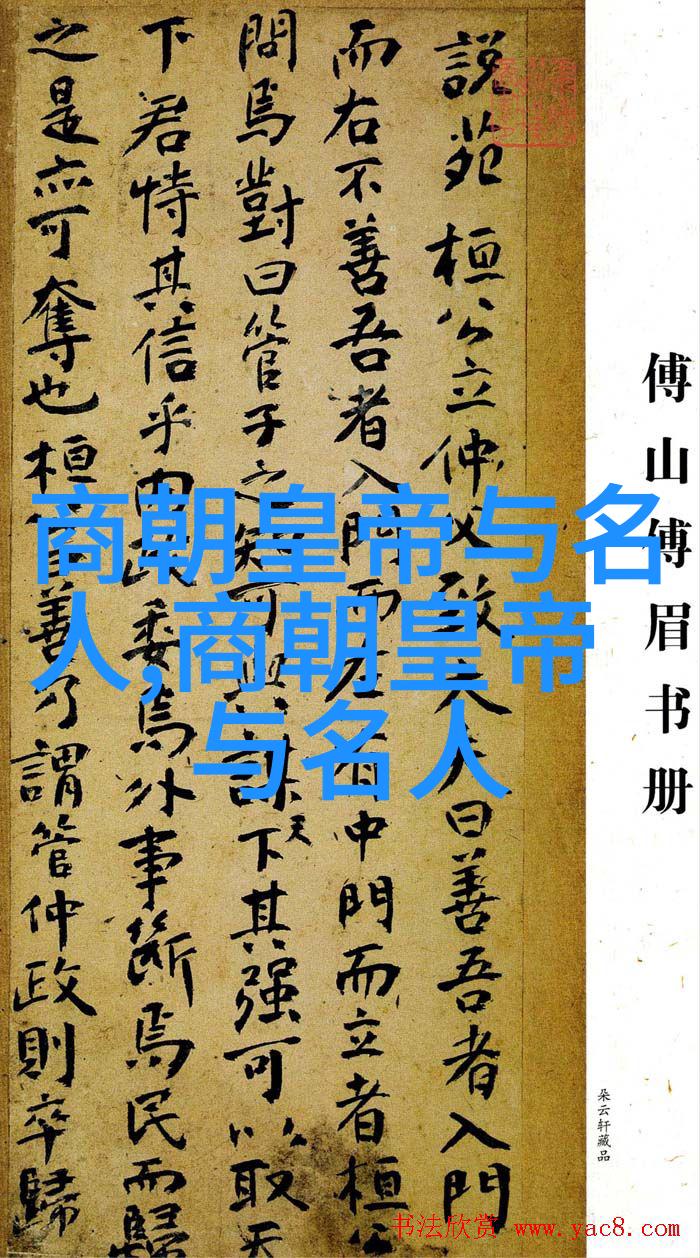 說苑 桓公立仲父致大夫曰善吾者入門
而右不善吾者入門而左有中門而立者桓公
問焉對曰管子之知可與謀天下其强可以取天
下君恃其信乎内政委焉外事斷焉民而歸
之是亦可奪也桓公曰善乃謂管仲政則卒歸
傅山傅眉书册
朵云轩藏品
商朝皇帝与名
人,商朝皇帝
与名人
书法欣赏 www.yac8.com